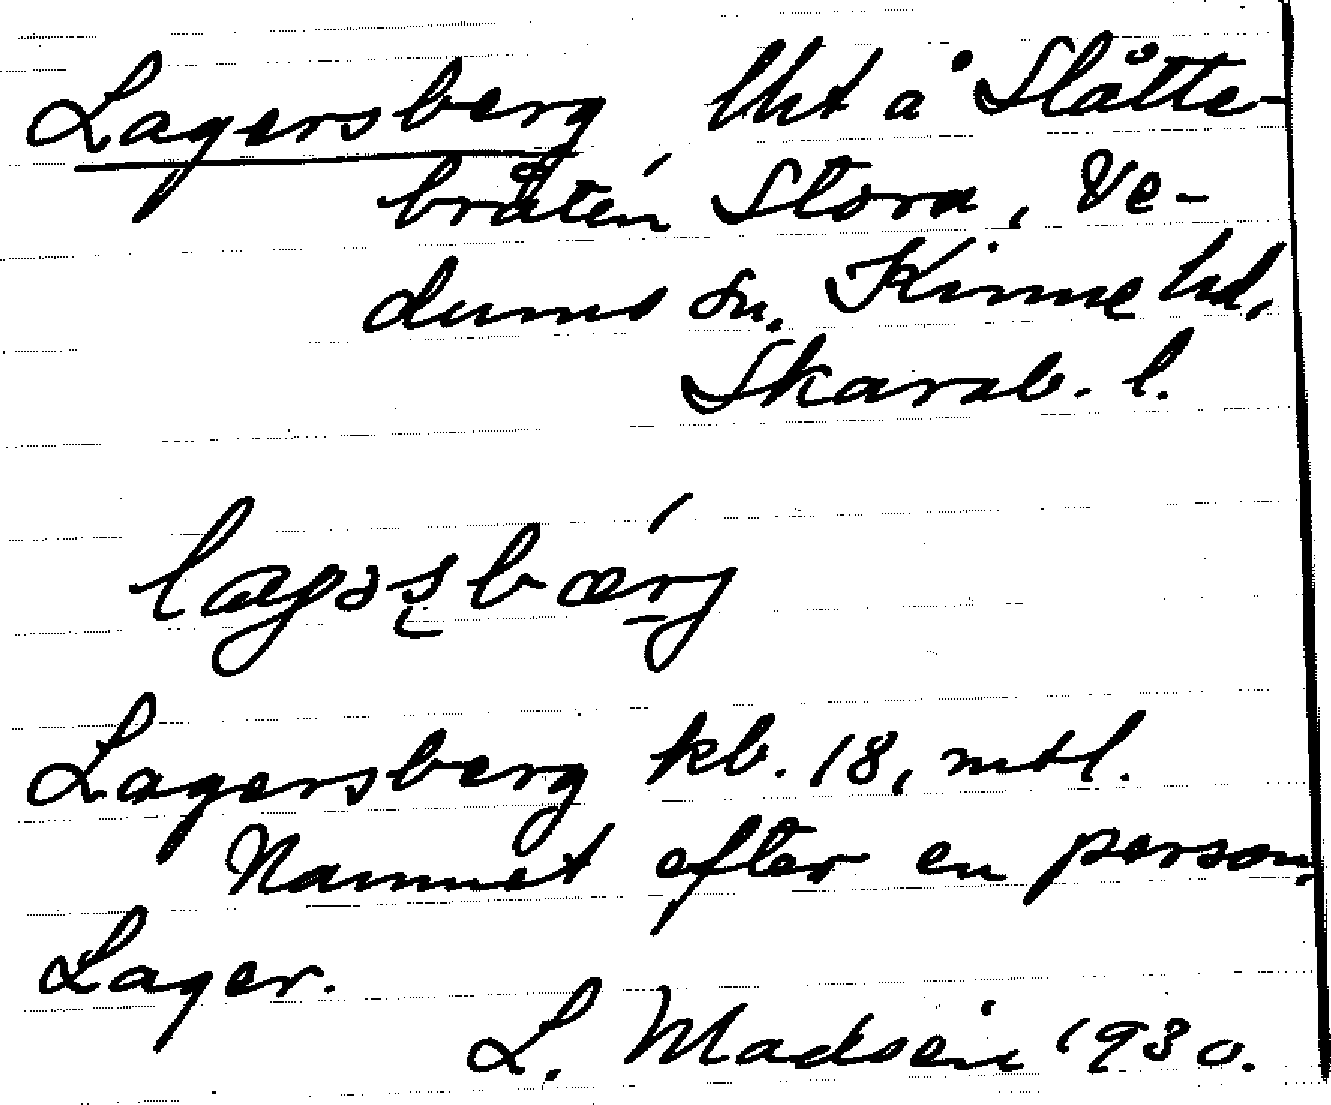 Lagersberg lht å Slåtte-
bråten Stora, Ve-
dums sn. Kinne hd.
Skarab. l.
lagəsbærg
Lagersberg kb. 18, mtl.
Namnet efter en person,
Lager.
L. Madsén 1930.